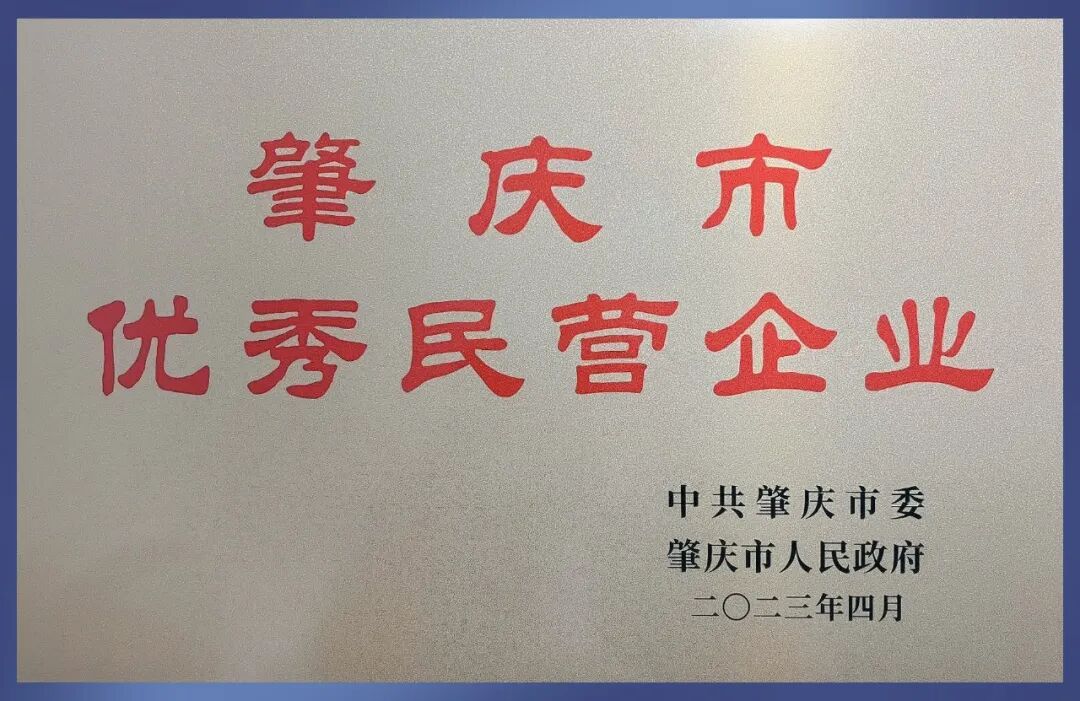 肇庆市
优秀民营企业
中共肇庆市委
肇庆市人民政府
二〇二三年四月